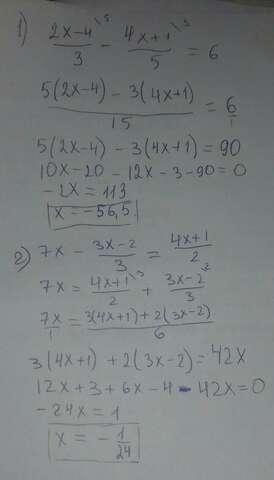 1) (2x-4)/3 \5 - (4x+1)/5 \3 = 6
(5(2x-4) - 3(4x+1))/15 = 6/1
5(2x-4) - 3(4x+1) = 90
10x-20 - 12x-3-90=0
-2x = 113
x = -56,5
2) 7x - (3x-2)/3 = (4x+1)/2
7x = (4x+1)/2 \3 + (3x-2)/3 \2
7x/1 = (3(4x+1)+2(3x-2))/6
3(4x+1) + 2(3x-2) = 42x
12x+3+6x-4-42x=0
-24x = 1
x = -1/24